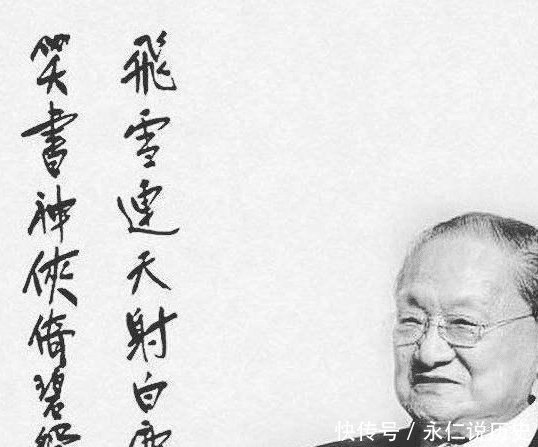 飛雪連天射白鹿
笑書神俠倚碧鴛
快传号 / 永仁说历史